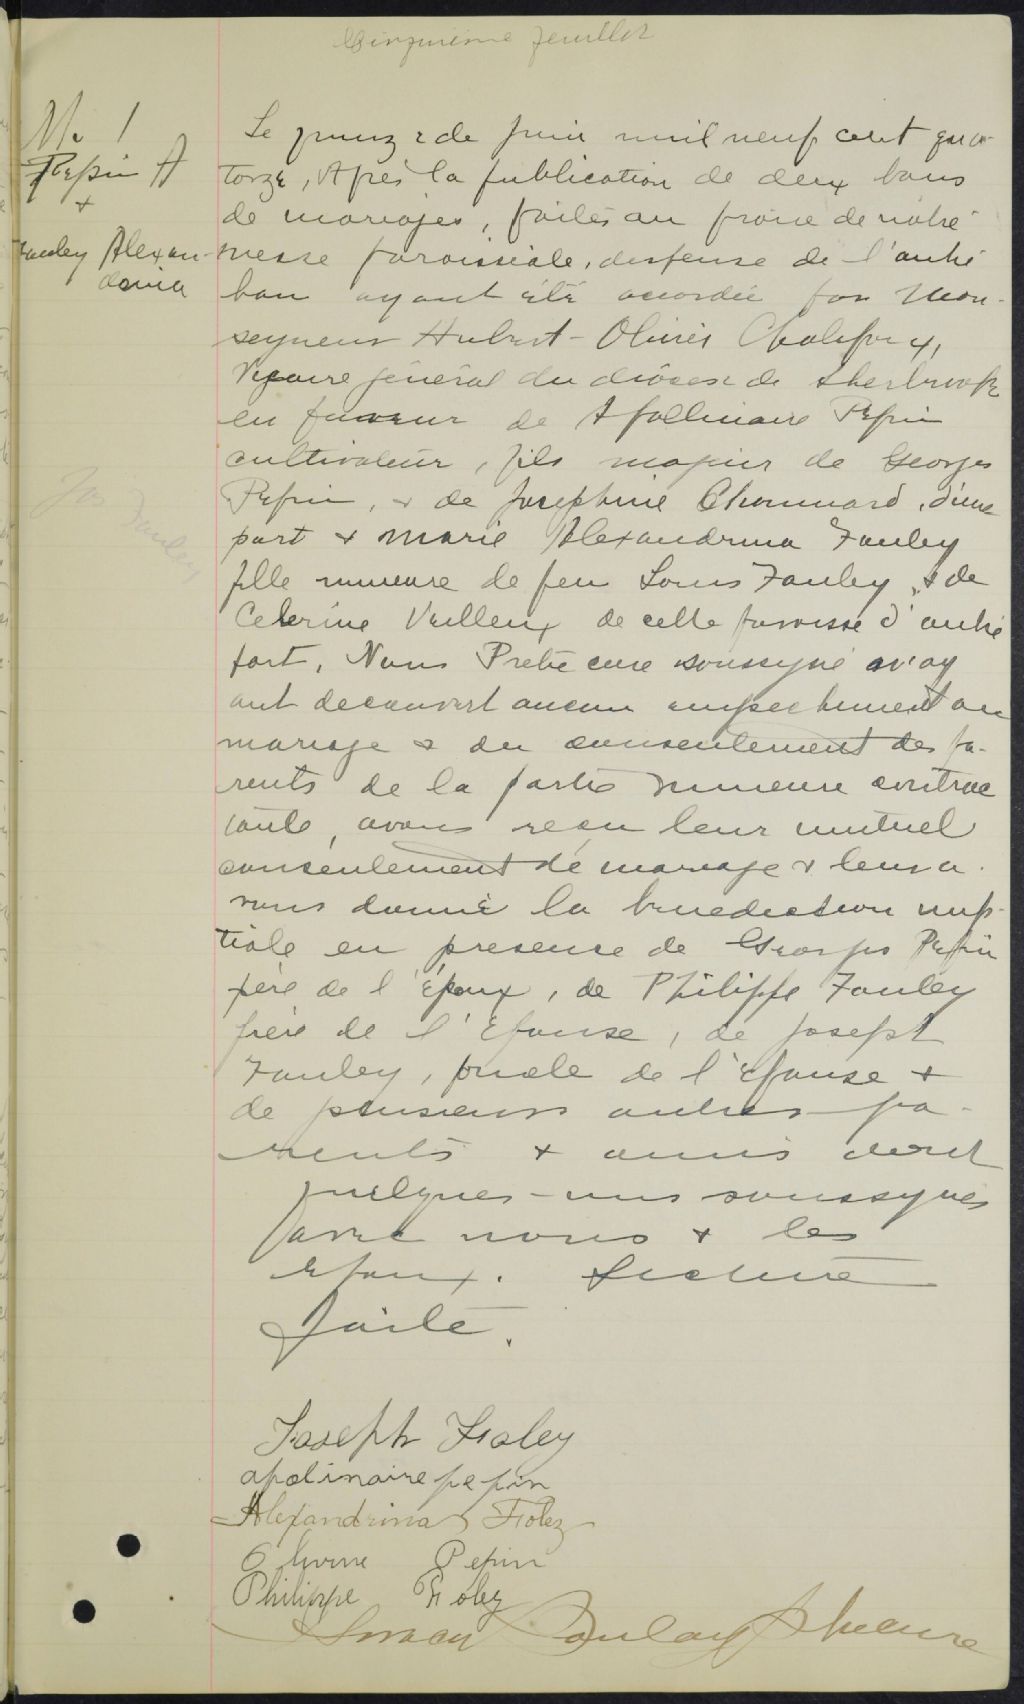 Cinquième feuillet
M. 1
Pepin A
+
Fauley Alexan-
drina
Le quinze de juin mil neuf cent qua-
torze, Après la publication de deux bans
de mariages, faites au prône de notre
messe paroissiale, dispense de l'autre
ban ayant été accordée par Mon-
seigneur Hubert-Olivier Chalifoux,
Vicaire général du diocèse de Sherbrooke
en faveur de Apollinaire Pepin
cultivateur, fils majeur de Georges
Pepin, + de Josephine Chouinard, d'une
part + Marie Alexandrina Fauley
fille mineure de feu Louis Fauley, + de
Celerine Veilleux de cette paroisse d'autre
part, Nous Prêtre curé soussigné n'ay
ant decouvert aucun empechement au
mariage + du consentement des pa-
rents de la partie mineure contrac
tante, avons reçu leur mutuel
consentement de mariage + leur a-
vons donné la benediction nup-
tiale en presence de Georges Pepin
père de l'Époux, de Philippe Fauley
frère de l'Epouse, de Joseph
Fauley, oncle de l'Epouse +
de plusieurs autres pa-
rents + amis dont
quelques-uns soussignés
avec nous + les
Epoux. Lecture
faite.
Joseph Foley
apolinaire pepin
Alexandrina Foley
Pepin
Philippe Foley
Ptre cure
Jos Fauley